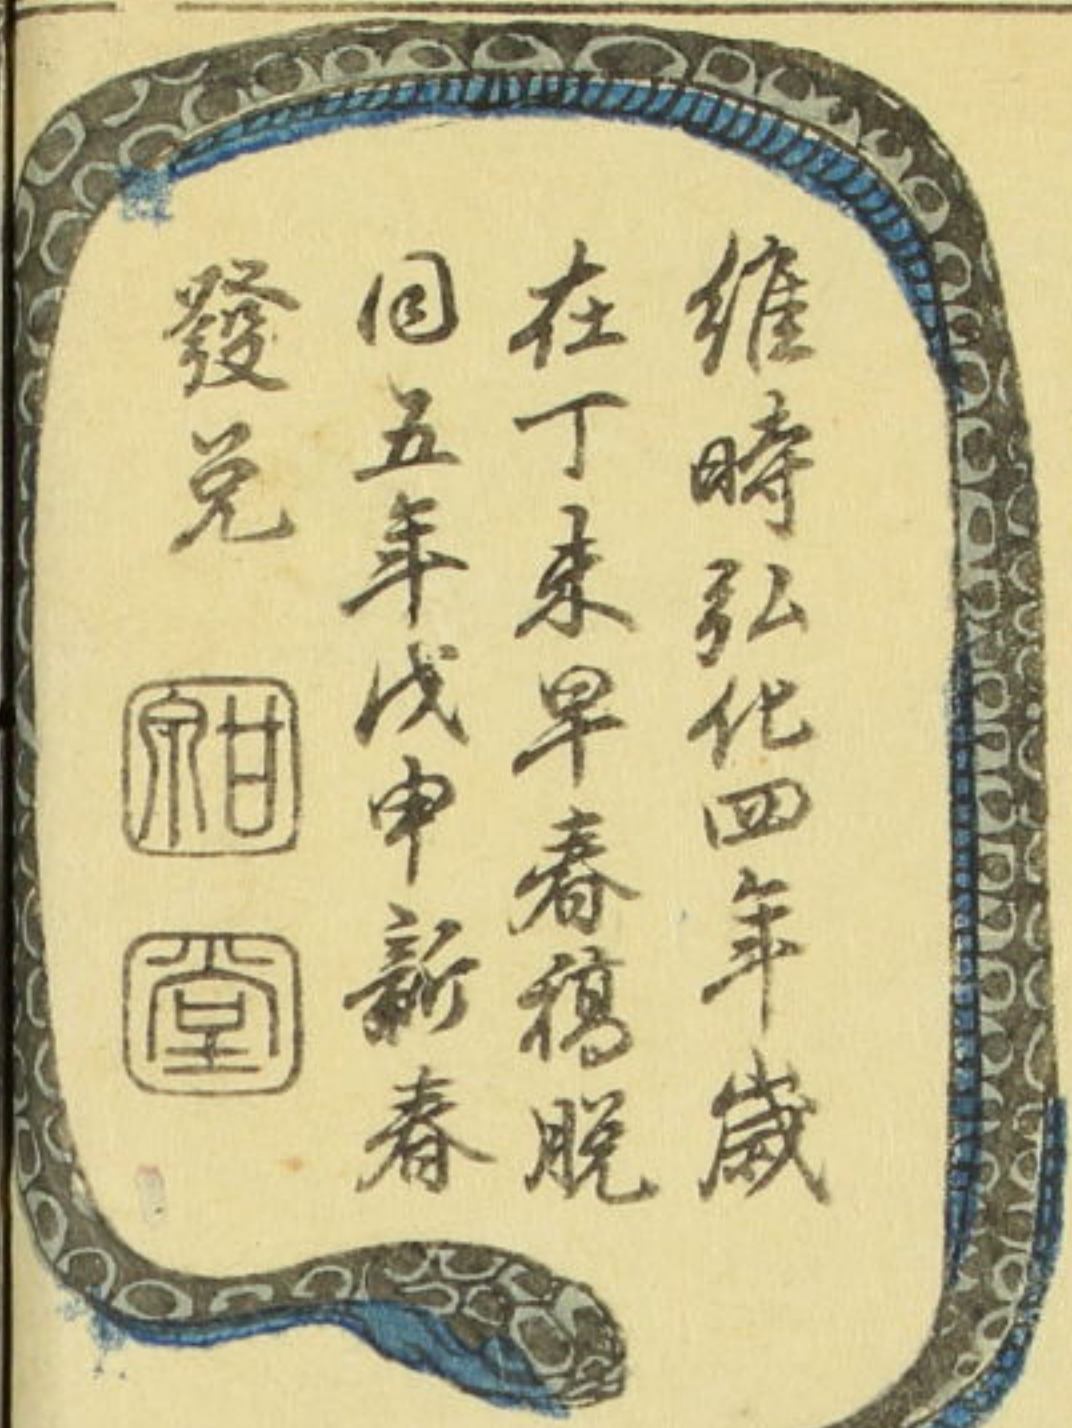 維時弘化四年歳
在丁未早春稿脱
同五年戊申新春
發兌
甘泉
堂